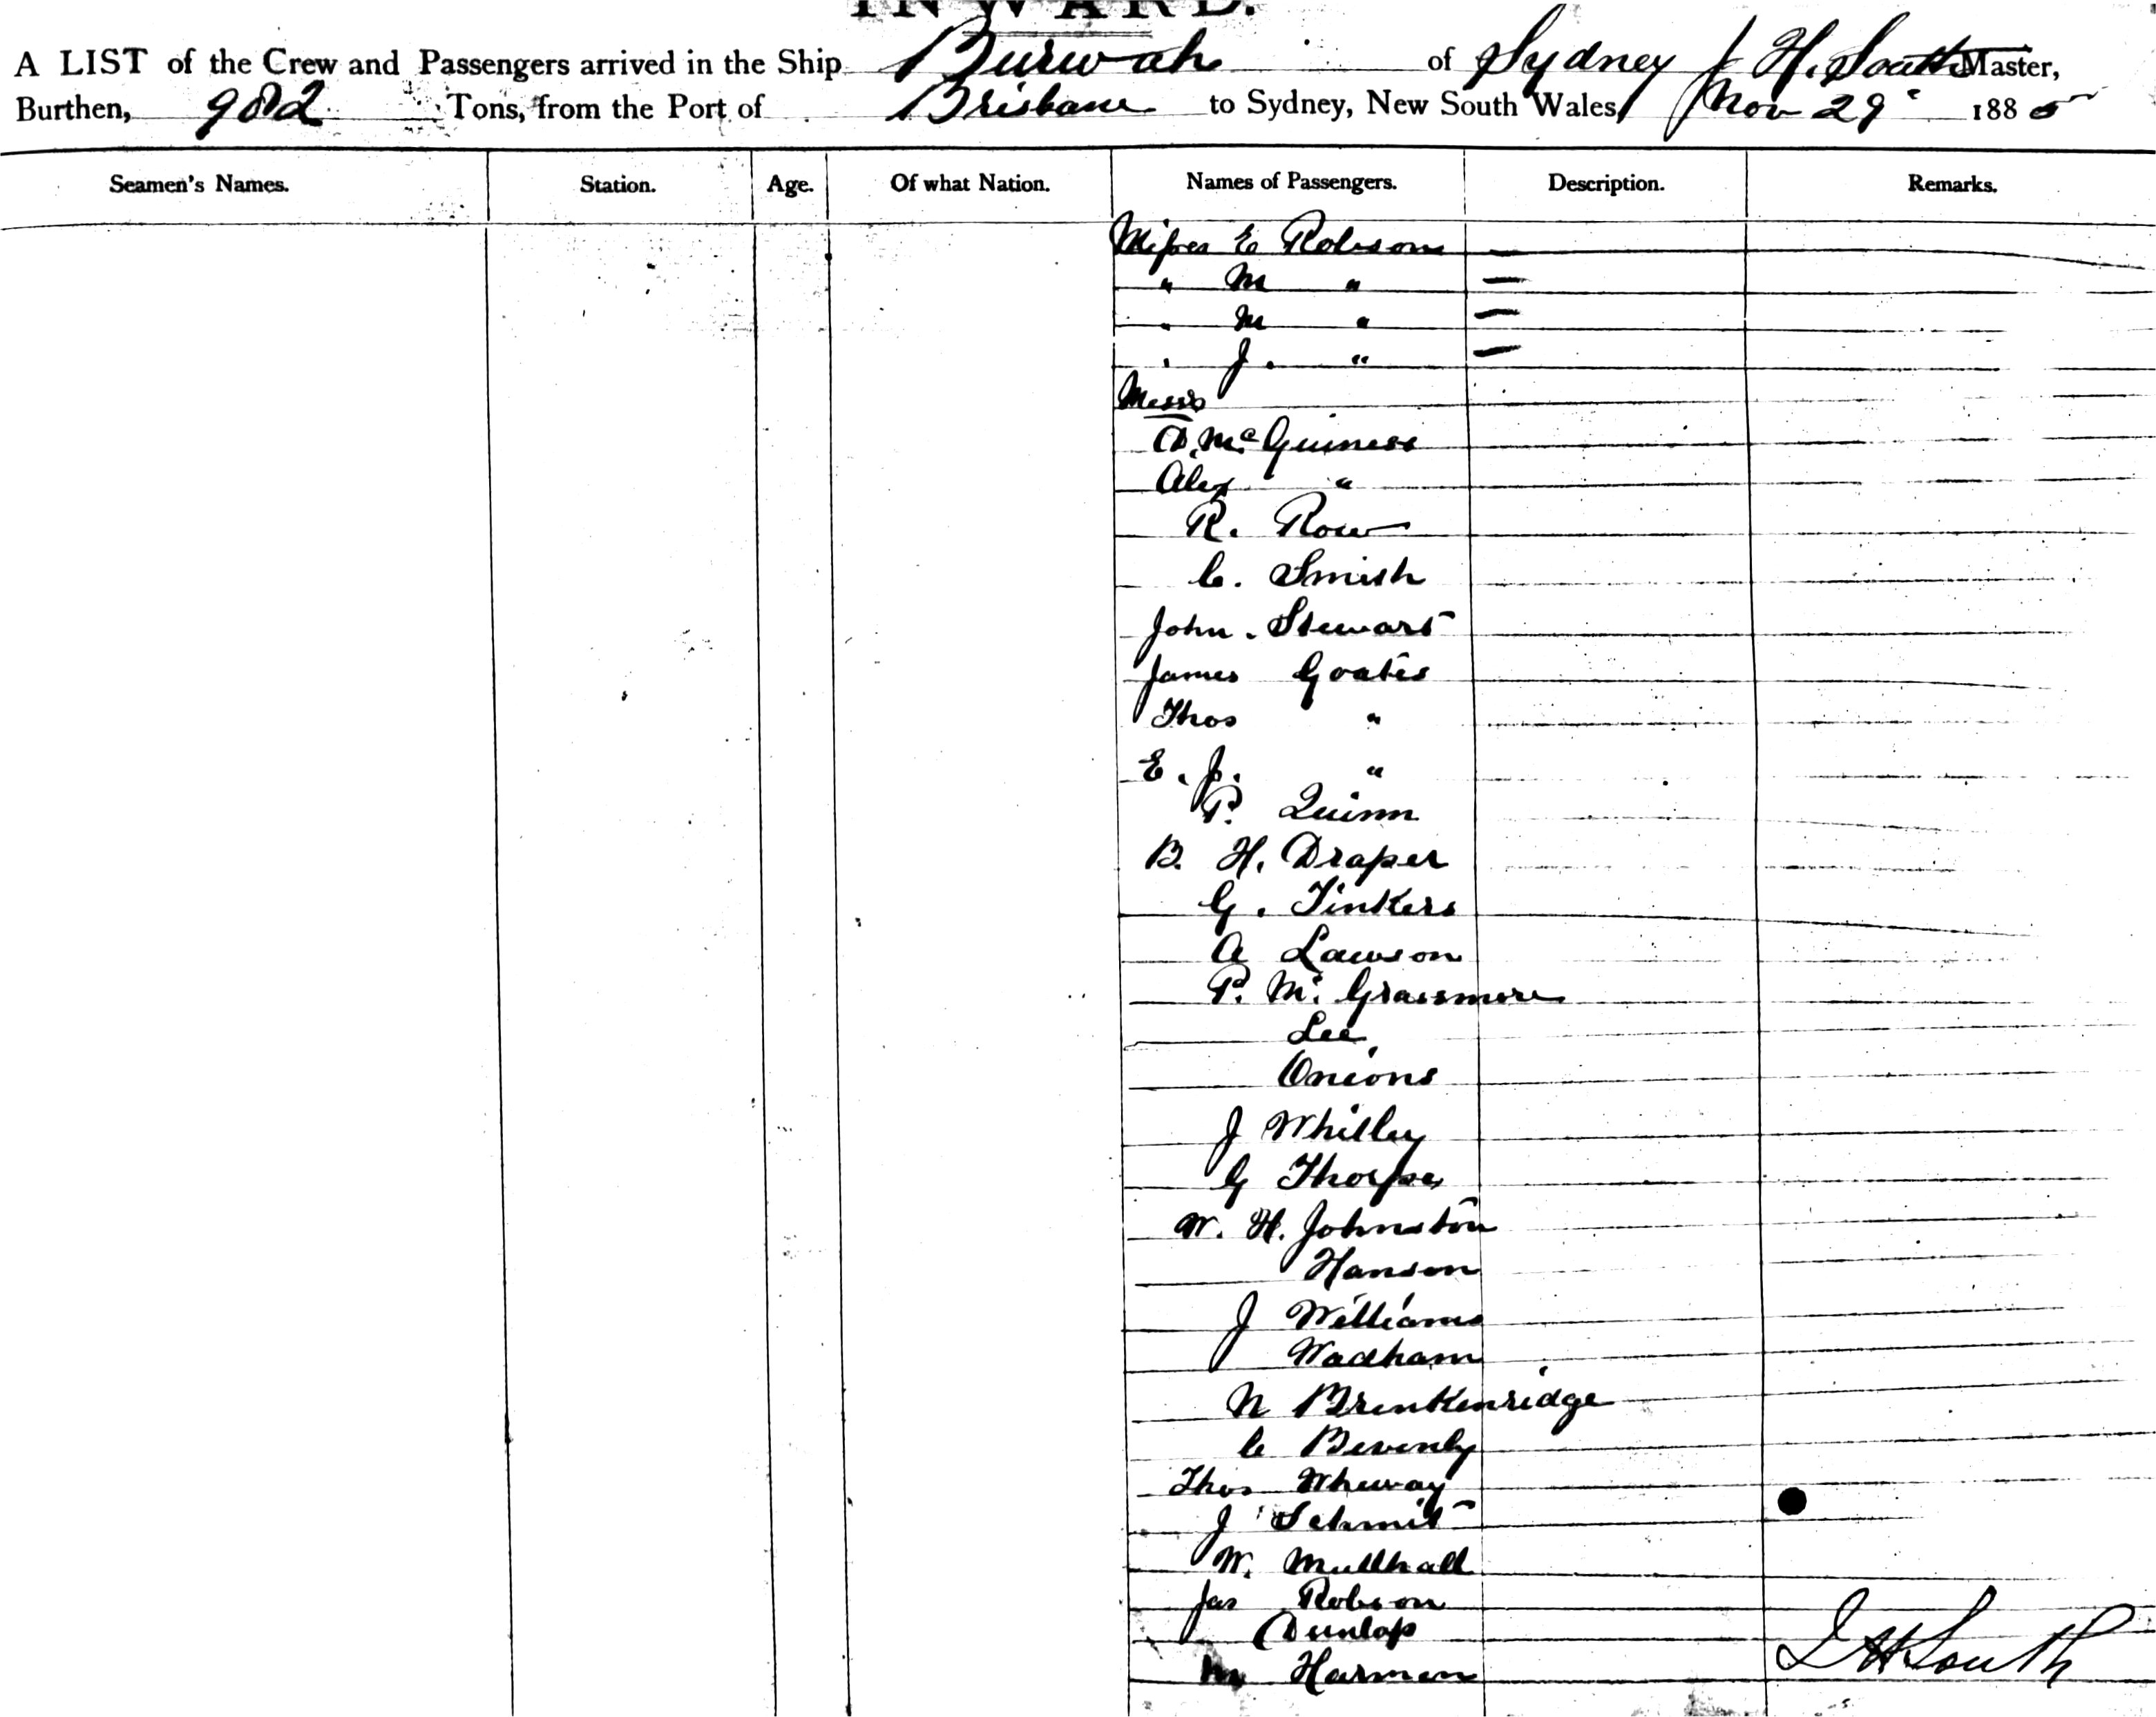 INWARD.
A LIST of the Crew and Passengers arrived in the Ship Burwah of Sydney J H. South Master,
Burthen, 982 Tons, from the Port of Brisbane to Sydney, New South Wales, Nov 29 1885
Seamen's Names. Station. Age. Of what Nation. Names of Passengers. Description. Remarks.
Misses E Robson —
" M " —
" M " —
" J. " —
Messrs
D. McGuiness
Alex "
R. Row
C. Smith
John. Stewart
James Goates
Thos "
E. J. "
P. Quinn
B. H. Draper
G. Tinkers
A Lawson
P. Mc Grassmere
Lee
Onions
J Whitley
G Thorpe
W. H. Johnston
Hanson
J Williams
Wadham
N Brenkenridge
C Bevenly
Thos Wheway
J Schmit
W. Mullhall
Jas Robson
Dunlop
M Harmen
J H South